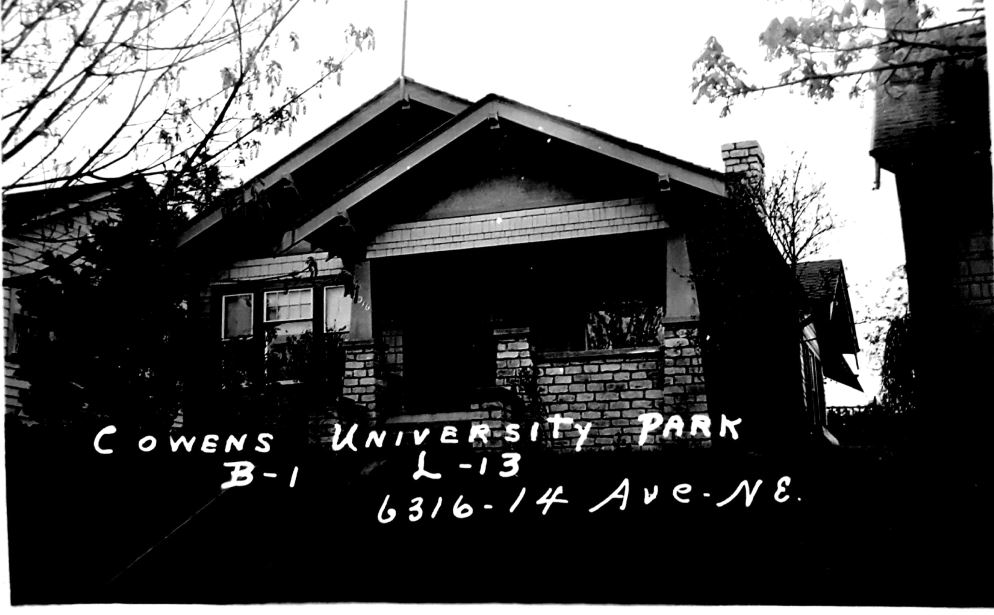 COWENS UNIVERSITY PARK
B-1 L-13
6316-14 Ave-NE.